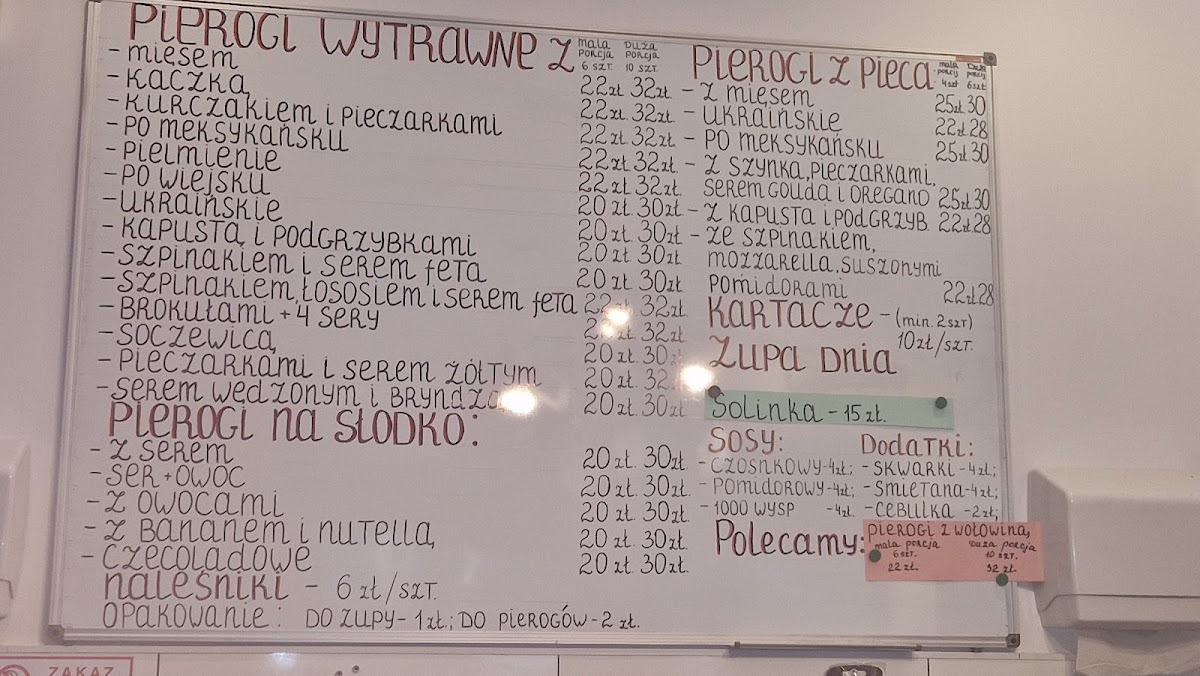 PIEROGI WYTRAWNE Z
MAŁA PORCJA 6 SZT. DUŻA PORCJA 10 SZT.
- MIĘSEM 22 zł 32 zł.
- KACZKĄ 22 zł. 32 zł.
- KURCZAKIEM I PIECZARKAMI 22 zł. 32 zł.
- PO MEKSYKAŃSKU 22 zł 32 zł.
- PIELMIENIE 22 zł 32 zł.
- PO WIEJSKU 20 zł. 30 zł.
- UKRAIŃSKIE 20 zł. 30 zł.
- KAPUSTĄ I PODGRZYBKAMI 20 zł 30 zł
- SZPINAKIEM I SEREM FETA 20 zł 30 zł
- SZPINAKIEM, ŁOSOSIEM I SEREM FETA 22 zł. 32 zł.
- BROKUŁAMI + 4 SERY zł 32 zł.
- SOCZEWICĄ 20 zł. 30 zł
- PIECZARKAMI I SEREM ŻÓŁTYM 20 zł. 32 zł
- SEREM WĘDZONYM I BRYNDZĄ 20 zł 30 zł
PIEROGI NA SŁODKO:
- Z SEREM 20 zł. 30 zł.
- SER + OWOC 20 zł. 30 zł.
- Z OWOCAMI 20 zł 30 zł.
- Z BANANEM I NUTELLĄ 20 zł. 30 zł.
- CZECOLADOWE 20 zł. 30 zł.
NALEŚNIKI - 6 zł/SZT.
OPAKOWANIE : DO ZUPY - 1 zł.; DO PIEROGÓW - 2 zł.
PIEROGI Z PIECA
MAŁA PORCJ 4 SZT DUŻA PORCJ 6 SZT
- Z MIĘSEM 25 zł 30
- UKRAIŃSKIE 22 zł 28
- PO MEKSYKAŃSKU 25 zł 30
- Z SZYNKĄ, PIECZARKAMI,
SEREM GOUDA I OREGANO 25 zł 30
- Z KAPUSTĄ I PODGRZYB. 22 zł 28
- ZE SZPINAKIEM,
MOZZARELLA, SUSZONYMI
POMIDORAMI 22 zł 28
KARTACZE - (min. 2 SZT)
10 zł/SZT.
ZUPA DNIA
SOLINKA - 15 zł.
SOSY:
- CZOSNKOWY - 4 zł;
- POMIDOROWY - 4 zł;
- 1000 WYSP - 4 zł.
DODATKI:
- SKWARKI - 4 zł;
- ŚMIETANA - 4 zł;
- CEBULKA - 2 zł;
Polecamy:
PIEROGI Z WOŁOWINĄ
MAŁA PORCJA DUŻA PORCJA
6 SZT. 10 SZT.
22 zł. 32 zł.
ZAKAZ